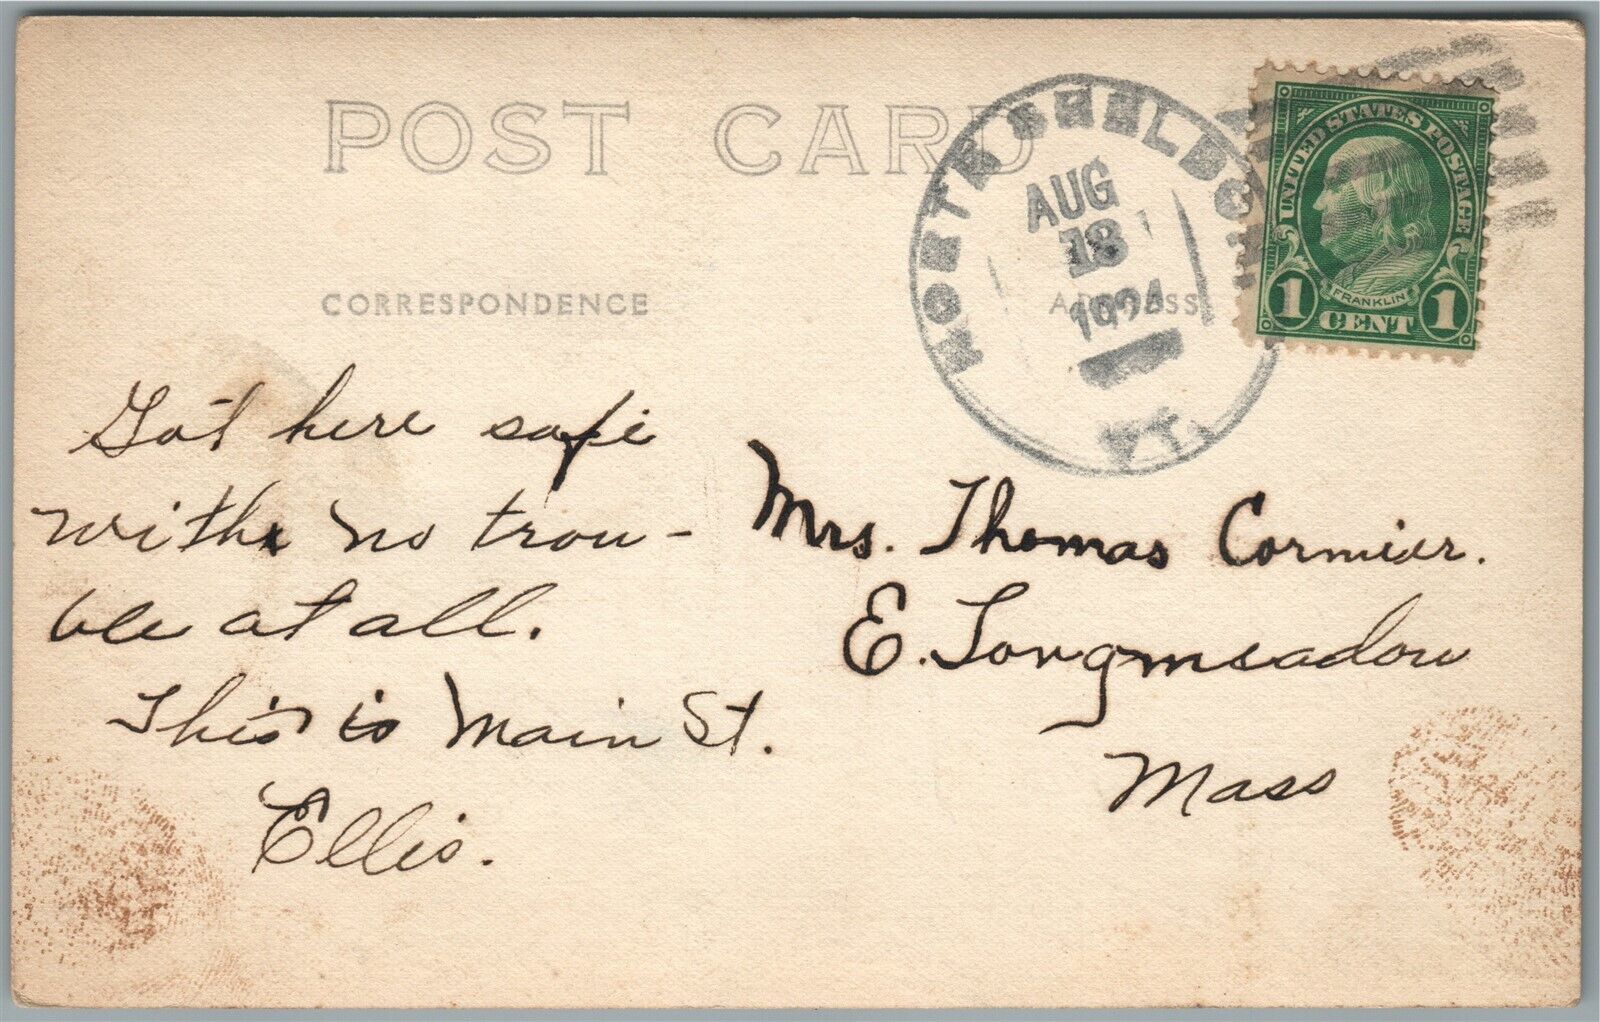 POST CARD
CORRESPONDENCE
ADDRESS
NORTH SHELDON
AUG
18
1924
VT.
UNITED STATES POSTAGE
FRANKLIN
1 CENT 1
Got here safe
with no trou-
ble at all.
This is Main St.
Ellis.
Mrs. Thomas Cormier.
E. Longmeadow
Mass